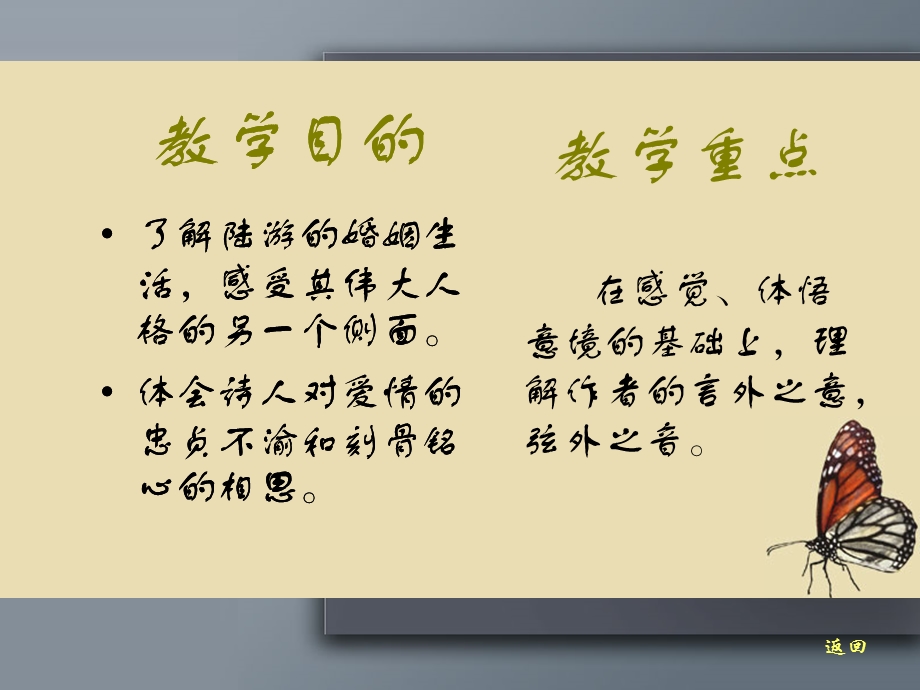 教学目的
• 了解陆游的婚姻生
活，感受其伟大人
格的另一个侧面。
• 体会诗人对爱情的
忠贞不渝和刻骨铭
心的相思。
教学重点
在感觉、体悟
意境的基础上，理
解作者的言外之意，
弦外之音。
返回